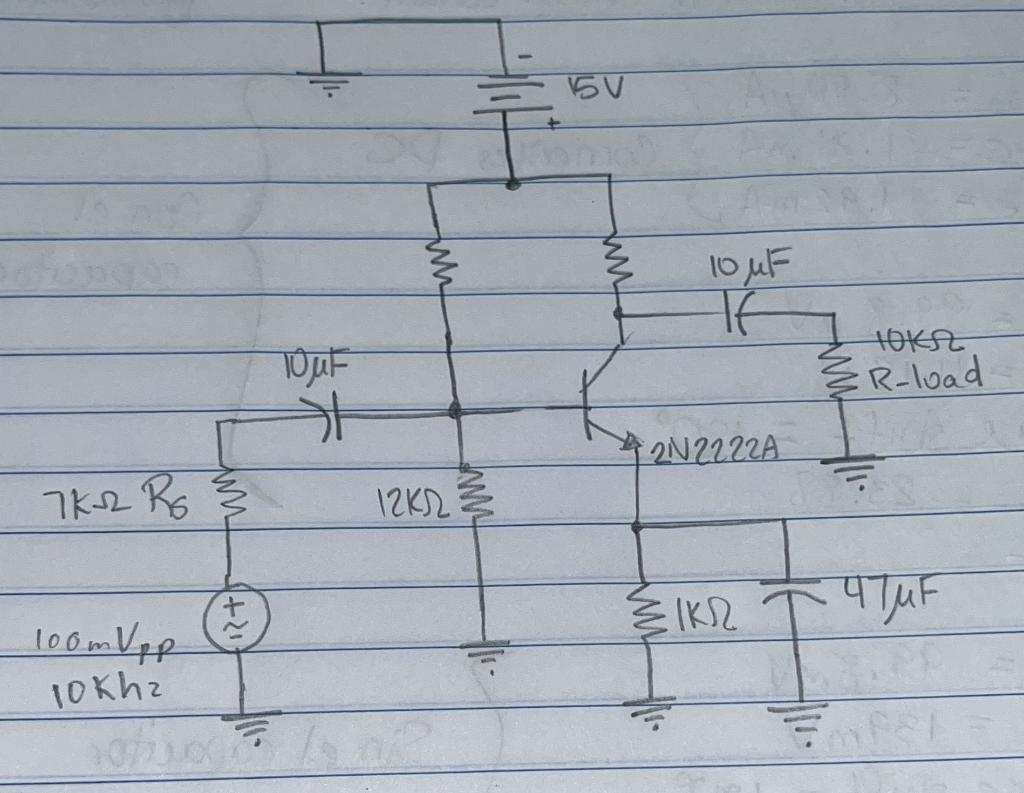 -
15V
+
10µF
10KΩ
R-load
10µF
2N2222A
7KΩ RG
12KΩ
+
~
1KΩ
47µF
100mVpp
10Khz